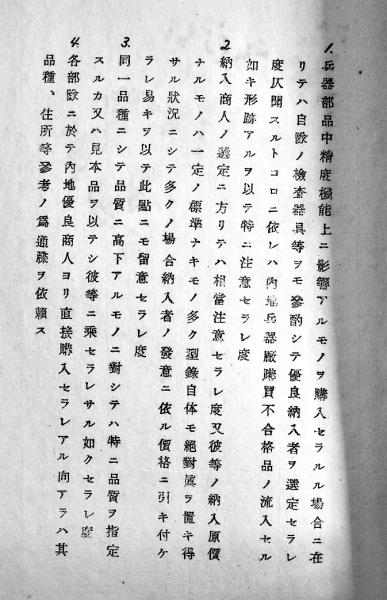 1.兵器部品中精度機能上ニ影響アルモノヲ購入セラルル場合ニ在
リテハ自隊ノ検査器具等ヲモ参酌シテ優良納入者ヲ選定セラレ
度仄聞スルトコロニ依レハ内地兵器廠購買不合格品ノ流入セル
如キ形跡アルヲ以テ特ニ注意セラレ度
2.納入商人ノ選定ニ方リテハ相當注意セラレ度又彼等ノ納入原價
ナルモノハ一定ノ標準ナキモノ多ク型錄自体モ絶對眞ヲ置キ得
サル狀況ニシテ多クノ場合納入者ノ發意ニ依ル價格ニ引キ付ケ
ラレ易キヲ以テ此點ニモ留意セラレ度
3.同一品種ニシテ品質ニ高下アルモノニ對シテハ特ニ品質ヲ指定
スルカ又ハ見本品ヲ以テシ彼等ニ乘セラレサル如クセラレ度
4.各部隊ニ於テ內地優良商人ヨリ直接購入セラレアル向アラハ其
品種、住所等參考ノ爲通牒ヲ依賴ス